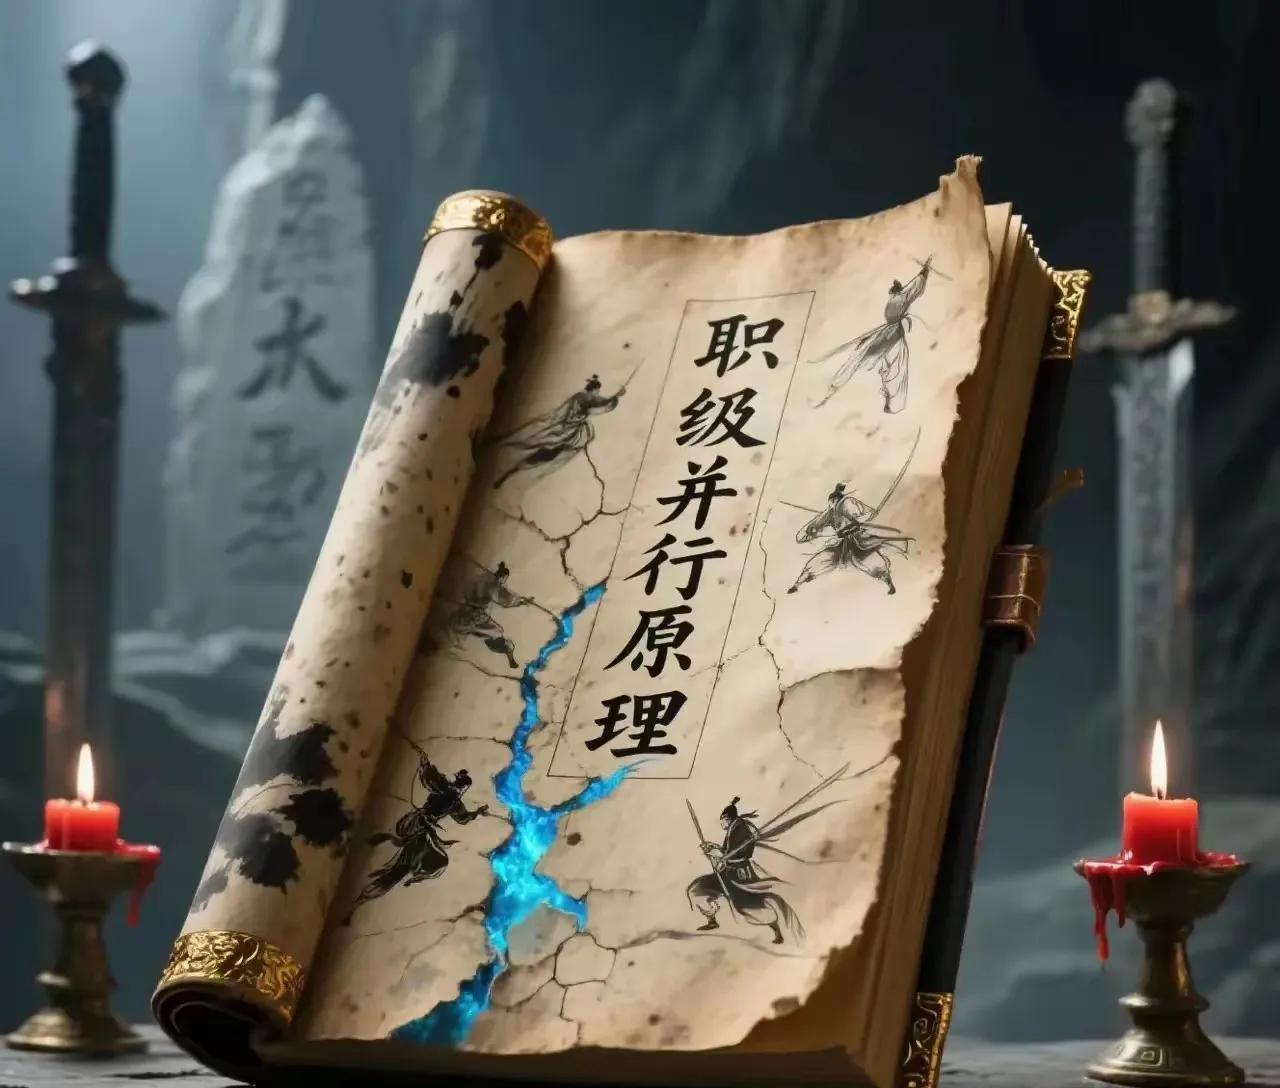 职级并行原理